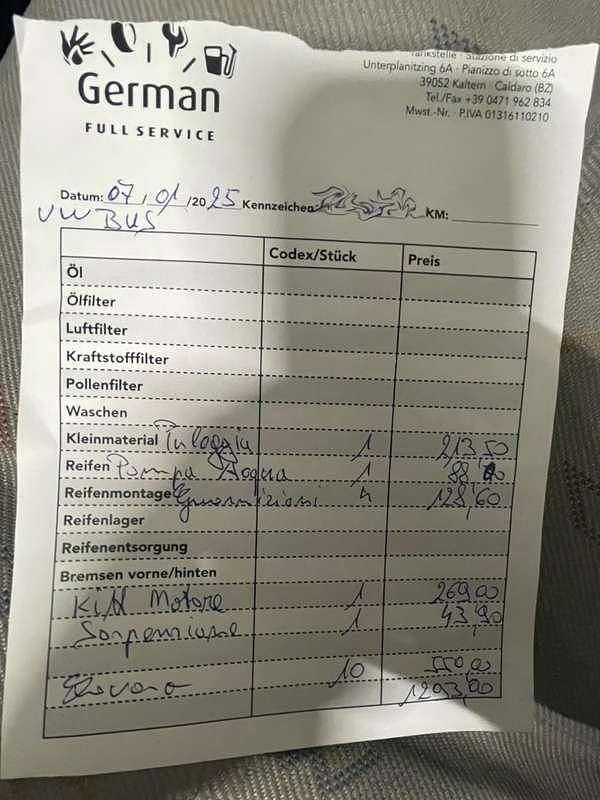 German
FULL SERVICE
Tankstelle · Stazione di servizio
Unterplanitzing 6A · Pianizzo di sotto 6A
39052 Kaltern · Caldaro (BZ)
Tel./Fax +39 0471 962 834
Mwst.-Nr. · P.IVA 01316110210
Datum: 07/01/2025 Kennzeichen: KM:
VW BUS
Codex/Stück Preis
Öl
Ölfilter
Luftfilter
Kraftstofffilter
Pollenfilter
Waschen
Kleinmaterial Puleggia 1 213,50
Reifen Pompa Acqua 1 88
Reifenmontage Guarnizioni 4 128,60
Reifenlager
Reifenentsorgung
Bremsen vorne/hinten
Kit Motore 1 269,00
1 43,90
10 550,00
1293,00